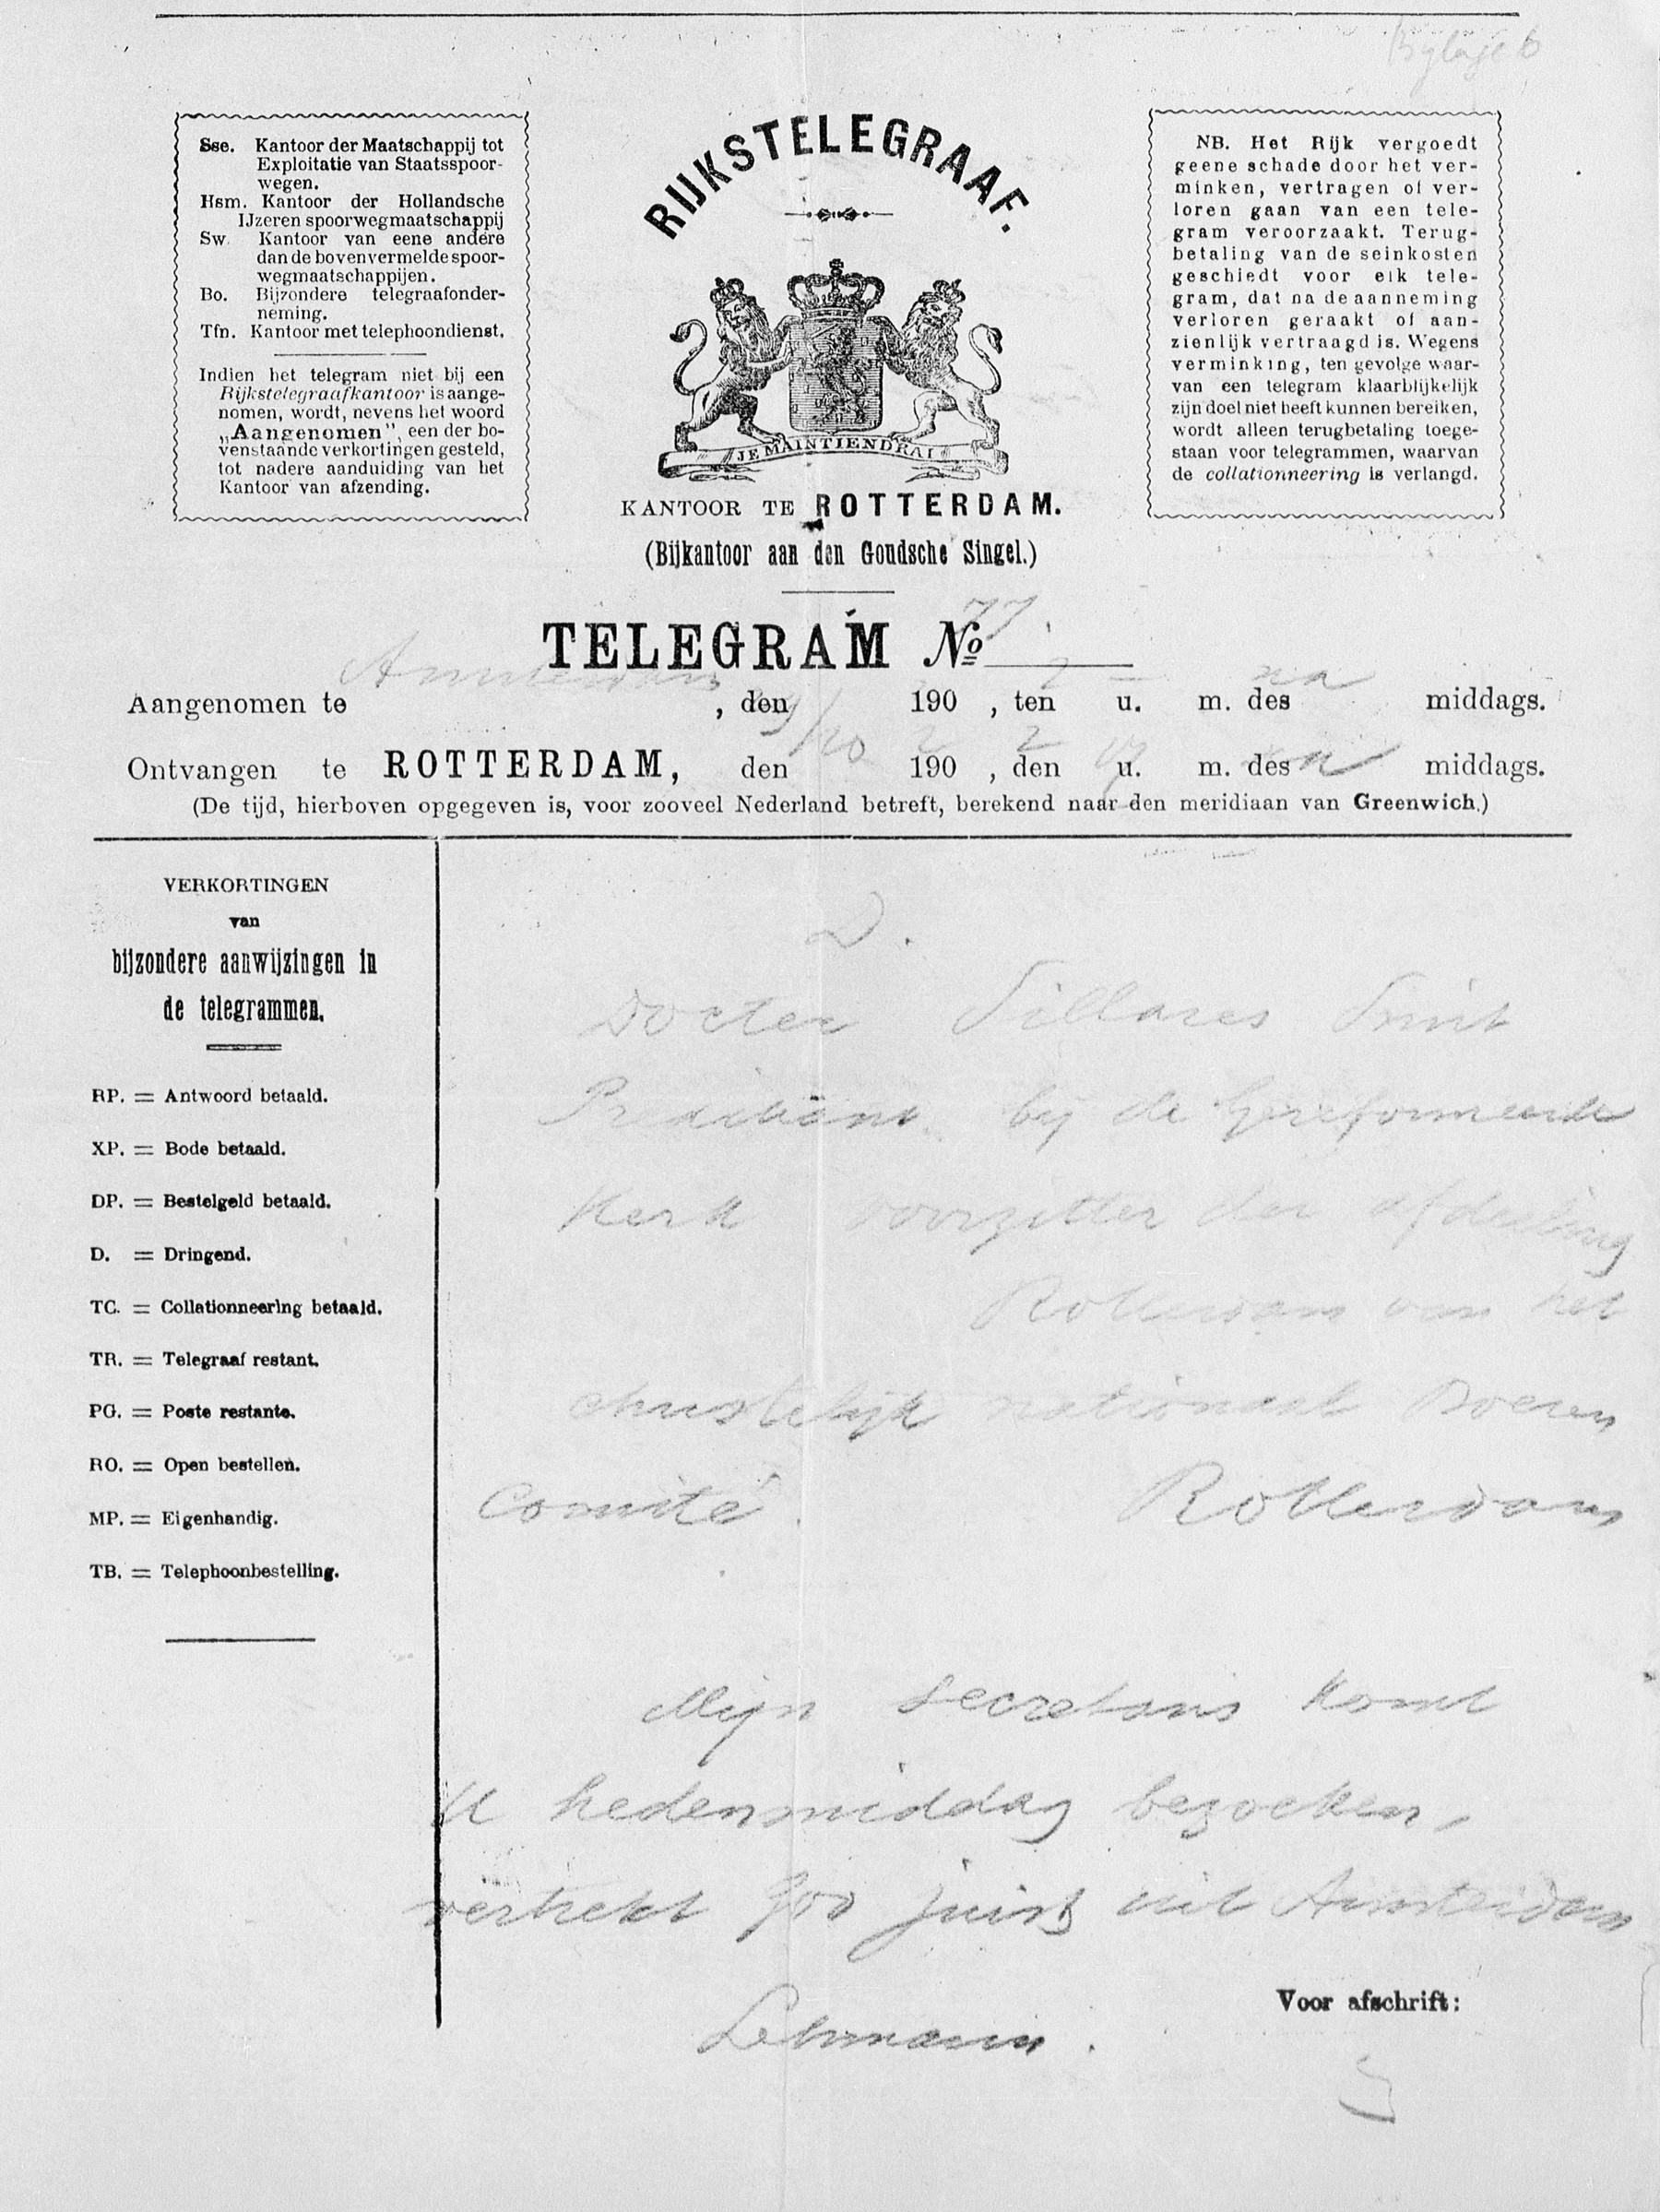 Bijlage 6
Sse. Kantoor der Maatschappij tot
Exploitatie van Staatsspoor-
wegen.
Hsm. Kantoor der Hollandsche
IJzeren spoorwegmaatschappij
Sw. Kantoor van eene andere
dan de bovenvermelde spoor-
wegmaatschappijen.
Bo. Bijzondere telegraafonder-
neming.
Tfn. Kantoor met telephoondienst.
Indien het telegram niet bij een
Rijkstelegraafkantoor is aange-
nomen, wordt, nevens het woord
„Aangenomen”, een der bo-
venstaande verkortingen gesteld,
tot nadere aanduiding van het
Kantoor van afzending.
RIJKSTELEGRAAF.
JE MAINTIENDRAI
KANTOOR TE ROTTERDAM.
(Bijkantoor aan den Goudsche Singel.)
NB. Het Rijk vergoedt
geene schade door het ver-
minken, vertragen of ver-
loren gaan van een tele-
gram veroorzaakt. Terug-
betaling van de seinkosten
geschiedt voor elk tele-
gram, dat na de aanneming
verloren geraakt of aan-
zienlijk vertraagd is. Wegens
verminking, ten gevolge waar-
van een telegram klaarblijkelijk
zijn doel niet heeft kunnen bereiken,
wordt alleen terugbetaling toege-
staan voor telegrammen, waarvan
de collationneering is verlangd.
TELEGRAM No 77.
Aangenomen te Amsterdam, den 190 , ten u. m. des na middags.
Ontvangen te ROTTERDAM, den 190 2, den 2 u. m. des middags.
(De tijd, hierboven opgegeven is, voor zooveel Nederland betreft, berekend naar den meridiaan van Greenwich.)
VERKORTINGEN
van
bijzondere aanwijzingen in
de telegrammen.
RP. = Antwoord betaald.
XP. = Bode betaald.
DP. = Bestelgeld betaald.
D. = Dringend.
TC. = Collationneering betaald.
TR. = Telegraaf restant.
PG. = Poste restante.
RO. = Open bestellen.
MP. = Eigenhandig.
TB. = Telephoonbestelling.
D.
Docter Sillares Smit
Predikant by de Gereformeerde
Kerk voorzitter der afdeeling
Rotterdam van het
christelijk nationaal Boeren
Comité. Rotterdam
Mijn secretaris komt
U hedenmiddag bezoeken,
vertrekt zoo juist uit Amsterdam
Lehmann.
Voor afschrift: